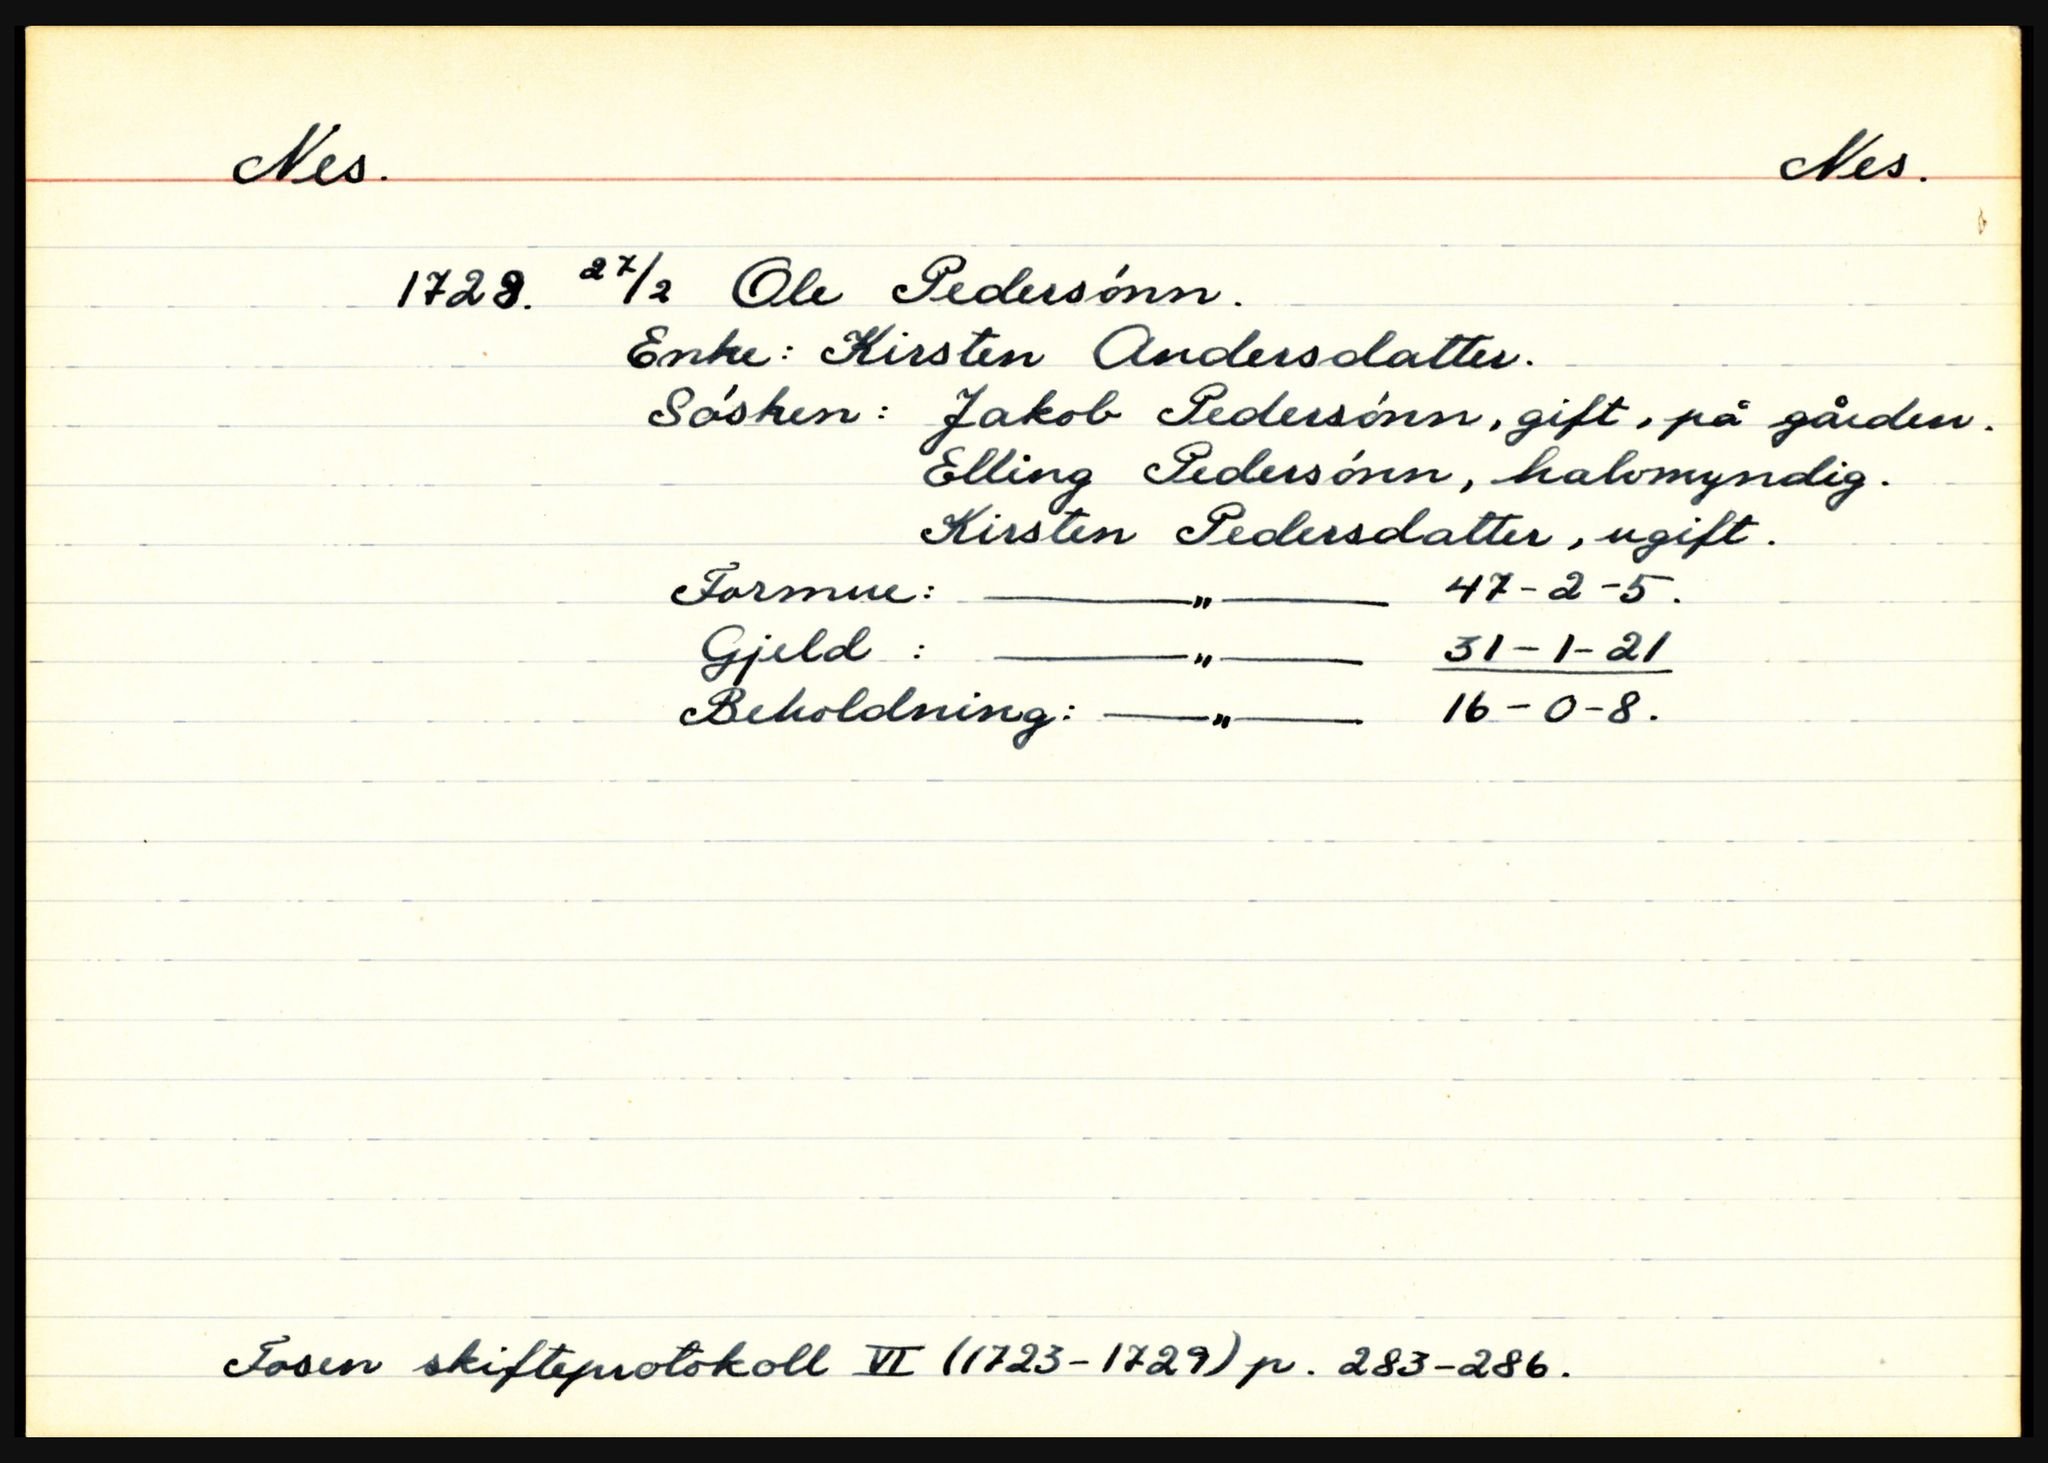 Nes. Nes.
1728. 27/2 Ole Pedersónn.
Enke: Kirsten Andersdatter.
Sósken: Jakob Pedersónn, gift, på gården.
Elling Pedersónn, halvmyndig.
Kirsten Pedersdatter, ugift.
Formue: ——"—— 47-2-5.
Gjeld : ——"—— 31-1-21
Beholdning: ——"—— 16-0-8.
Fosen skifteprotokoll VI (1723-1729) p. 283-286.